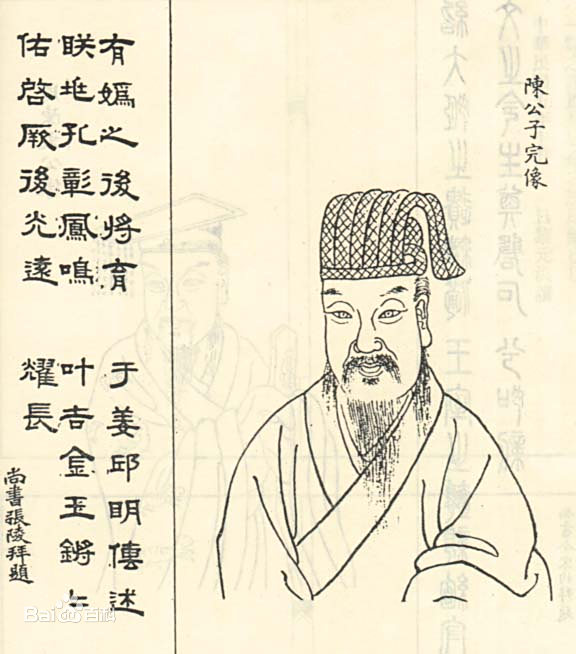 陳公子完像
有嬀之後將育 于姜邱明傳述
眹兆孔彰鳳鳴 叶吉金玉鏘〻
佑啓厥後光遠 耀長
尚書張陵拜題
Bai百科